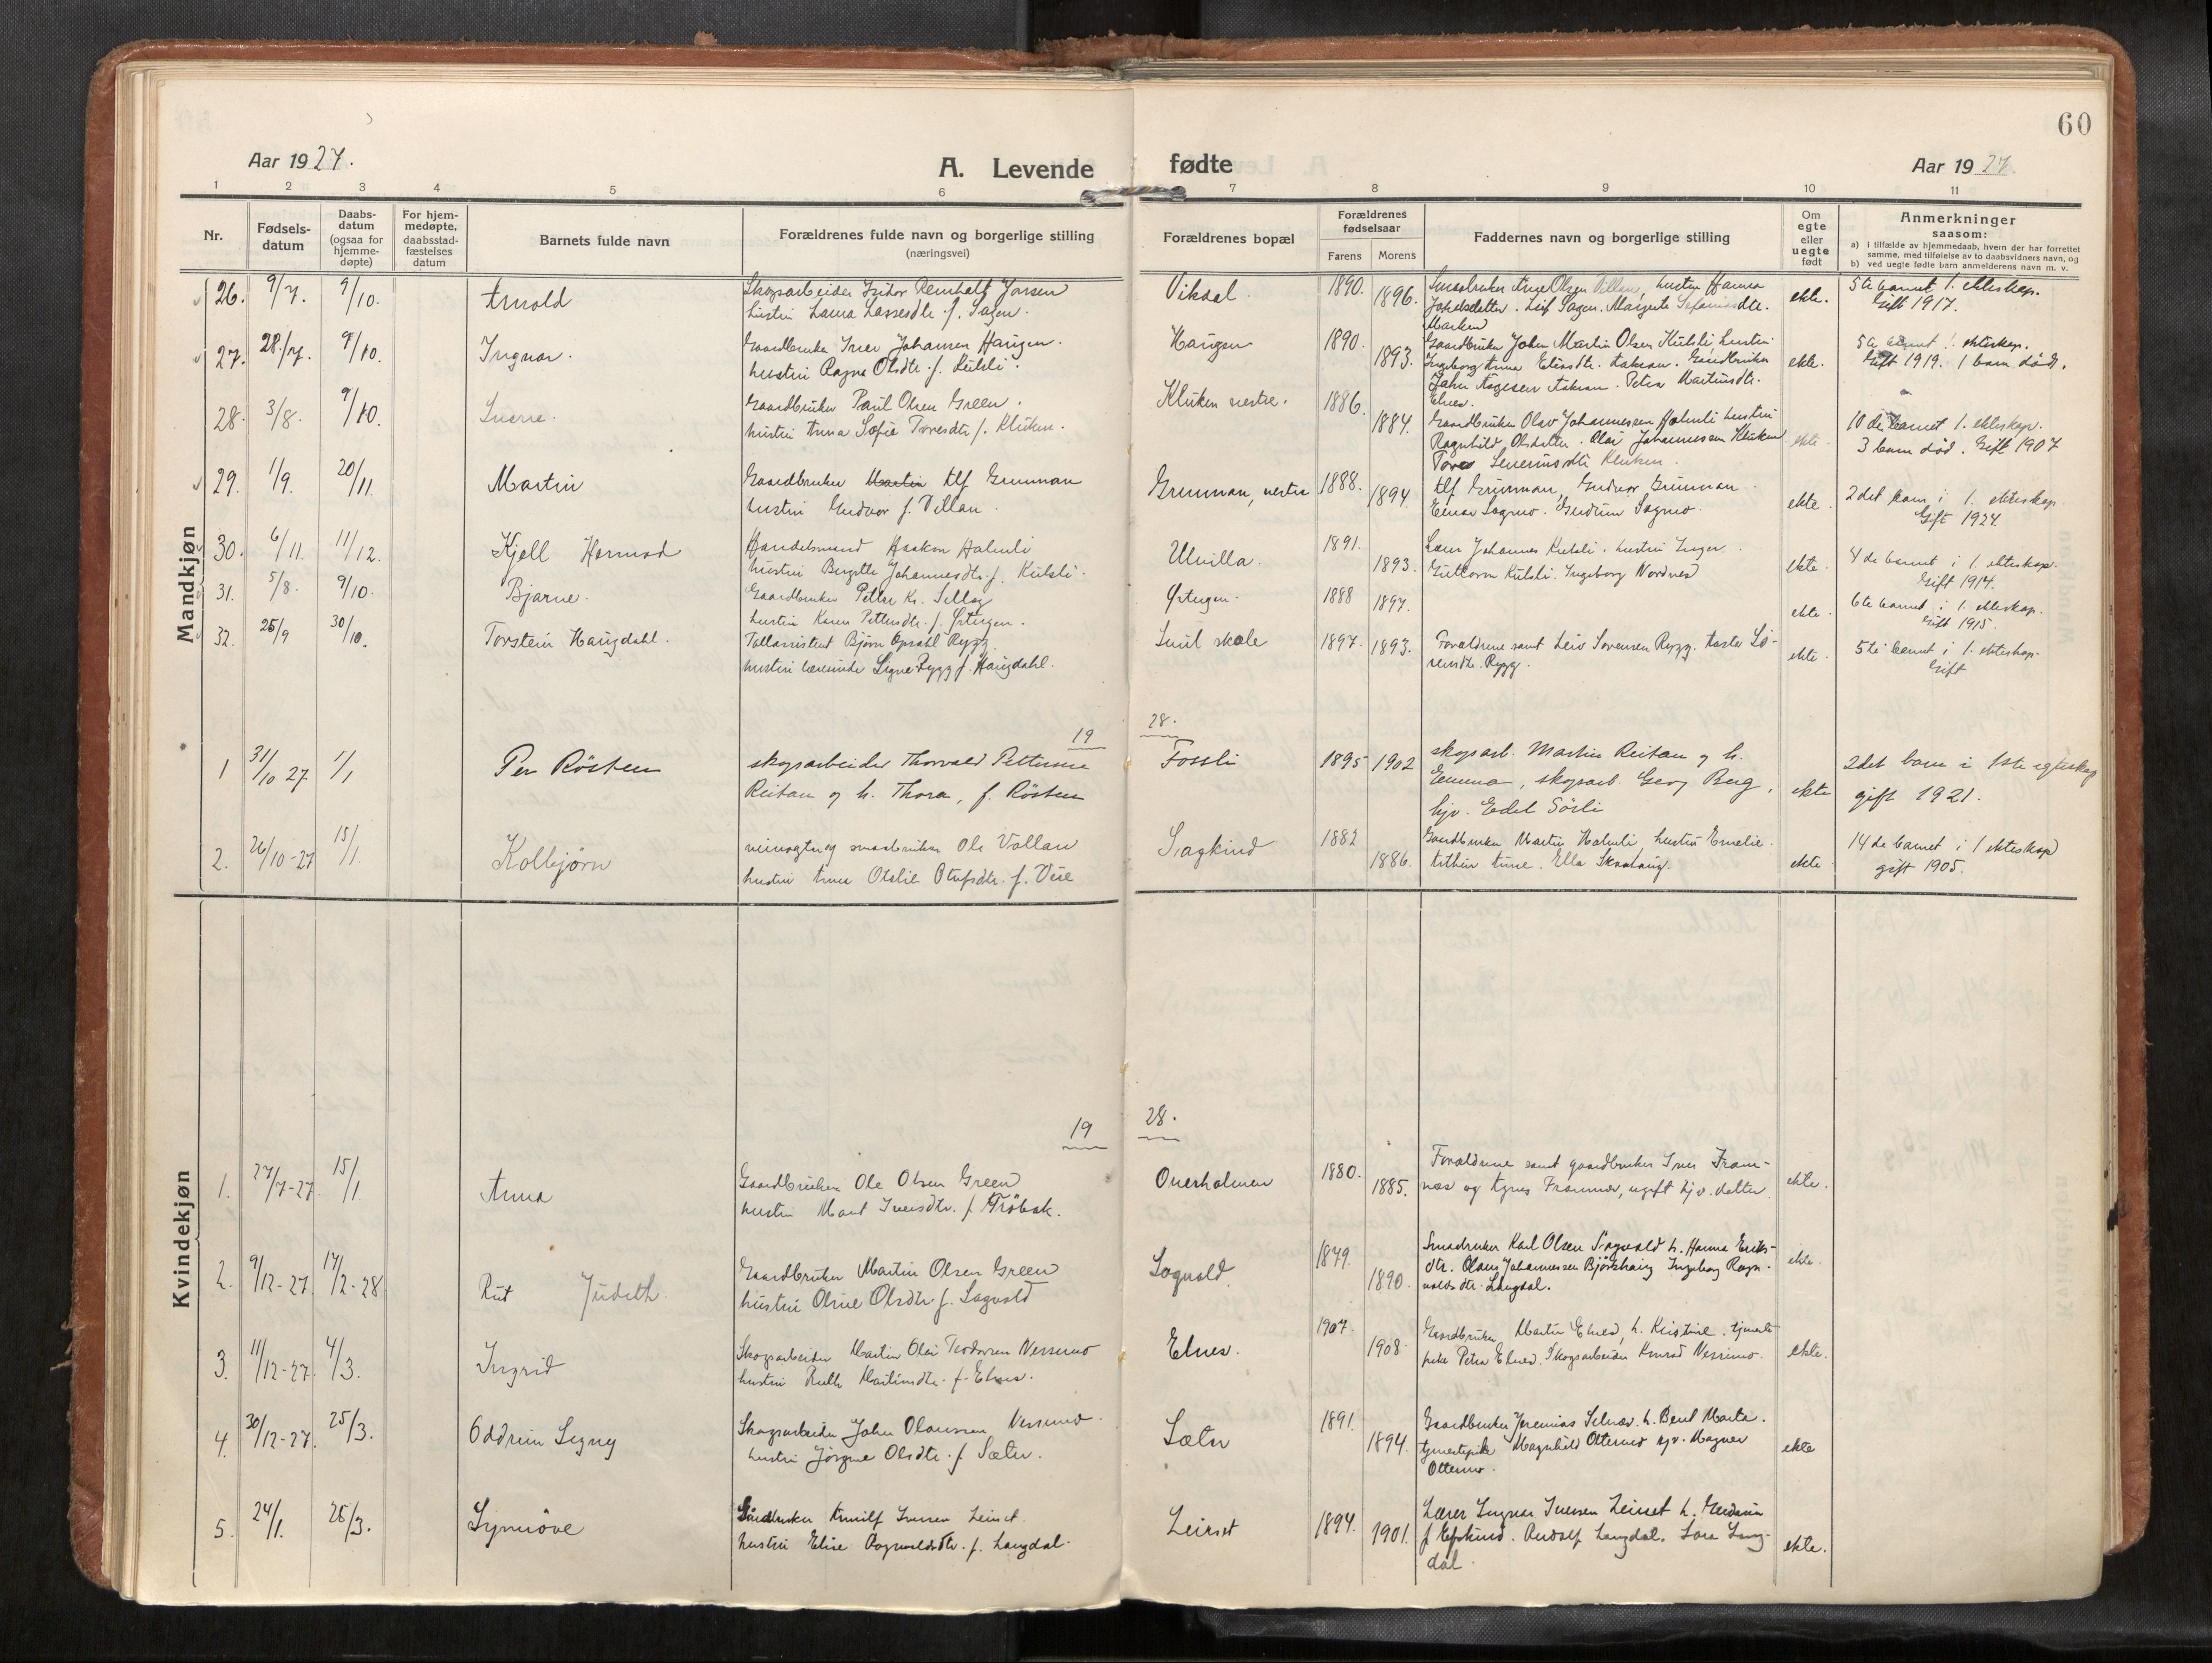 60
Aar 1927.
A. Levende fødte
Aar 1927.
1 2 3 4 5 6 7 8 9 10 11
Nr.
Fødsels-
datum
Daabs-
datum
(ogsaa for
hjemme-
døpte)
For hjem-
medøpte,
daabsstad-
fæstelses
datum
Barnets fulde navn
Forældrenes fulde navn og borgerlige stilling
(næringsvei)
Forældrenes bopæl
Forældrenes
fødselsaar
Farens Morens
Faddernes navn og borgerlige stilling
Om
egte
eller
uegte
født
Anmerkninger
saasom:
a) i tilfælde av hjemmedaab, hvem der har forrettet
samme, med tilføielse av to daabsvidners navn, og
b) ved uegte fødte barn anmelderens navn m. v.
Mandkjøn
26. 9/7. 9/10. Arnold
Skogsarbeider Isidor Reinholt
hustru Laura Lassesdtr. f. Sagen.
Vikdal. 1890. 1896.
Olsen hustru Hanna
Leif Sagen. Margrete
ekte.
5te barnet 1. ekteskap.
Gift 1917.
27. 28./7. 9/10. Ingvar.
Gaardbruker Iver Johansen Haugen.
hustru Ragna Olsdtr. f. Kulsli.
Haugen 1890. 1893.
Gaardbruker Johan Martin Olsen Kulsli, hustru
Ingeborg Anna Gaardbruker
Petra Martinsdtr.
Elnes.
ekte.
5te barnet 1. ekteskap.
Gift 1919. 1 barn død.
28. 3/8. 9/10. Sverre.
Gaardbruker Paul Olsen Green.
hustru Anna Sofie Toresdtr f. Kluken.
Kluken nestre. 1886. 1884.
Gaardbruker Olav Johannessen Holmli hustru
Ragnhild Olsdatter. Olav Johannessen Kluken
Severinsdtr Kluken.
ekte.
10de barnet 1. ekteskap.
3 barn død. Gift 1907
29. 1/9. 20/11. Martin
Gaardbruker Martin Alf Grunnan
hustru Gudvor f. Villan.
Grunnan, nestre 1888. 1894.
Alf Grunnan, Gudvor Grunnan.
Einar Sagmo. Gudrun Sagmo.
ekte.
2det barn i 1. ekteskap.
Gift 1924.
30. 6/11. 11/12. Kjell Hermod
Handelsmand Haakon Holmli
hustru Birgitte Johannesdtr. f. Kulsli.
Ulvilla. 1891. 1893.
Lærer Johannes Kulsli. hustru Inger.
Guttorm Kulsli. Ingeborg Nordnes
ekte.
4de barnet i 1. ekteskap.
Gift 1914.
31. 5/8. 9/10. Bjarne.
Gaardbruker Petter Kr.
hustru Karen Pettersdtr. f. Østugen.
Østugen. 1888 1897.
ekte.
6te barnet i 1. ekteskap.
Gift 1915.
32. 25/9 30/10. Torstein Haugdahl.
Tollassistent Bjørn Rygg
hustru lærerinde Signe Rygg f. Haugdahl.
skole 1897. 1893.
Forældrene samt Leiv Sørensen Rygg. Sø-
rensdtr. Rygg.
ekte.
5te barnet i 1. ekteskap.
Gift
19 28.
1 31/10 27 1/1 Per Rösten
skogsarbeider Thorvald
Reitan og h. Thora, f. Rösten
Fossli 1895 1902
skogsarb. Martin Reitan og h.
Emma, skogsarb. Georg Berg,
hjv. Edel Sörli
ekte
2det barn i 1ste egteskap
gift 1921.
2. 26/10-27 15/1. Kolbjørn
veivogter og smaabruker Ole Vollan
hustru Anna Otelie Olufsdtr. f. Veie
1882 1886.
Gaardbruker Martin Holmli, hustru Emelie.
Ella
ekte
14de barnet i 1 ekteskap
gift 1905.
Kvindekjøn
19 28.
1. 27/7-27 15/1. Anna
Gaardbruker Ole Olsen Green
hustru Marit Iversdtr. f. Trøbak.
Overholmen 1880. 1885.
Forældrene samt gaardbruker Iver Fram-
næs og Agnes Framnes, ugift hjv. datter.
ekte.
2. 9/12-27 17/2-28 Rut Judith.
Gaardbruker Martin Olsen Green
hustru Oline Olsdtr. f. Sagvold
Sagvold. 1879. 1890.
Smaabruker Karl Olsen Sagvold h. Hanna Eriks-
dtr. Olaus Johannessen Bjørkhaug Ingeborg Ragn-
valdsdtr. Langdal.
ekte.
3. 11/12-27. 4/3. Ingrid
Skogsarbeider Martin Olav Teodorsen Nessemo
hustru Ruth Martinsdtr. f. Elnes.
Elnes. 1907. 1908.
Gaardbruker Martin Elnes, h. Kristine. tjeneste-
pike Petra Elnes. Skogsarbeider Konrad Nessemo.
ekte.
4. 30/12-27. 25/3. Oddrun Signy
Skogsarbeider Johan Olaussen Nessemo.
hustru Jörgine Olsdtr. f. Sæter.
Sæter 1891. 1894.
Gaardbruker Jeremias Selnæs. h. Berit Marta.
tjenestepike Magnhild Ottermo hjv. Magnar
Ottermo.
ekte
5. 24/1. 25/3. Synnöve
Gaardbruker Arnulf Iversen Leirset.
hustru Elise Ragnvaldsdtr. f. Langdal.
Leirset 1894. 1901.
Lærer Ingvar Iversen Leirset h. Gudrun
f. Ekskind. Rudolf Langdal. Lara Lang-
dal.
ekte.